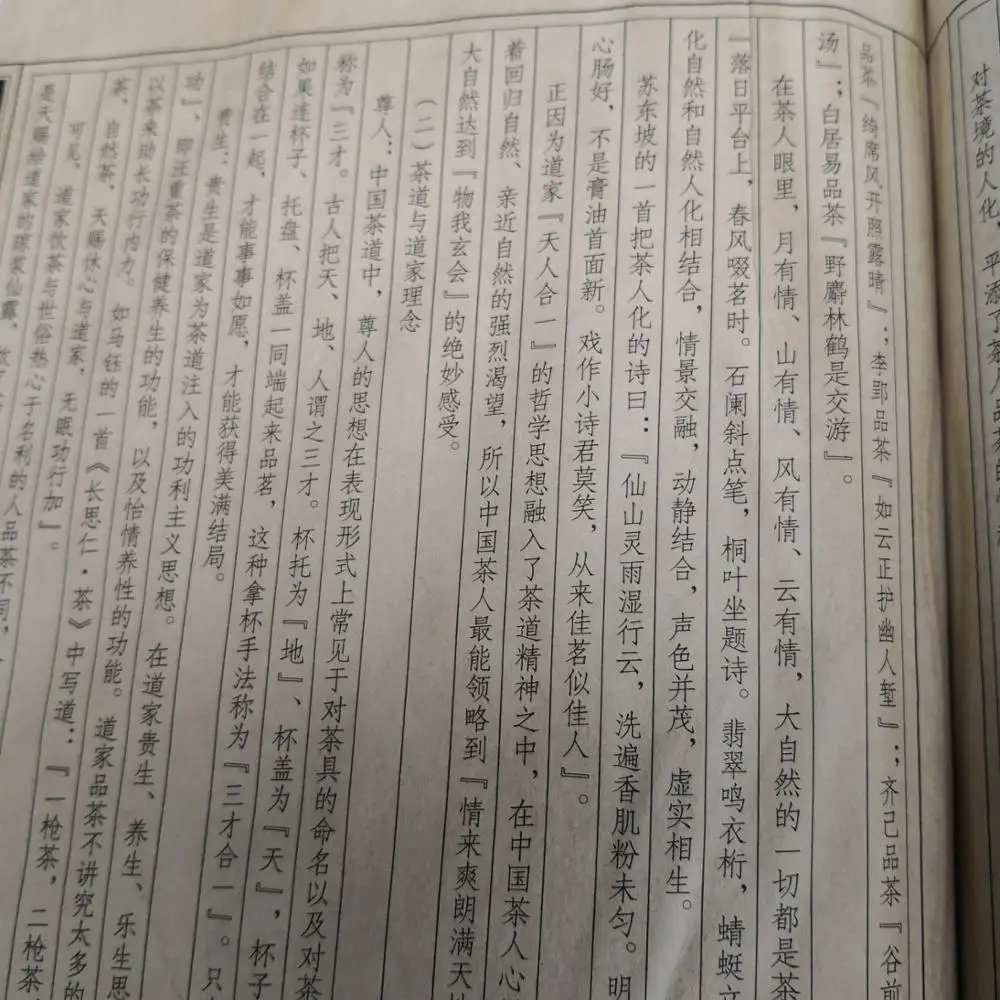 对茶境的人化，平添了茶人品茶的情
品茶『绮席风开照露晴』；李郢品茶『如云正护幽人堑』；齐己品茶『谷前
汤』；白居易品茶『野麝林鹤是交游』。
在茶人眼里，月有情、山有情、风有情、云有情，大自然的一切都是茶
『落日平台上，春风啜茗时。石阑斜点笔，桐叶坐题诗。翡翠鸣衣桁，蜻蜓立
化自然和自然人化相结合，情景交融，动静结合，声色并茂，虚实相生。
苏东坡的一首把茶人化的诗曰：『仙山灵雨湿行云，洗遍香肌粉未匀。明
心肠好，不是膏油首面新。戏作小诗君莫笑，从来佳茗似佳人』。
正因为道家『天人合一』的哲学思想融入了茶道精神之中，在中国茶人心
着回归自然、亲近自然的强烈渴望，所以中国茶人最能领略到『情来爽朗满天地
大自然达到『物我玄会』的绝妙感受。
（二）茶道与道家理念
尊人：中国茶道中，尊人的思想在表现形式上常见于对茶具的命名以及对茶
称为『三才。古人把天、地、人谓之三才。杯托为『地』、杯盖为『天』，杯子
如果连杯子、托盘、杯盖一同端起来品茗，这种拿杯手法称为『三才合一』。只
结合在一起，才能事事如愿，才能获得美满结局。
贵生：贵生是道家为茶道注入的功利主义思想。在道家贵生、养生、乐生思
功』，即注重茶的保健养生的功能，以及怡情养性的功能。道家品茶不讲究太多的
以茶来助长功行内力。如马钰的一首《长思仁·茶》中写道：『一枪茶，二枪茶
茶，自然茶，天赐休心与道家，无眠功行加』。
可见，道家饮茶与世俗热心于名利的人品茶不同，
是天赐给道家的琼浆仙露，饮了茶